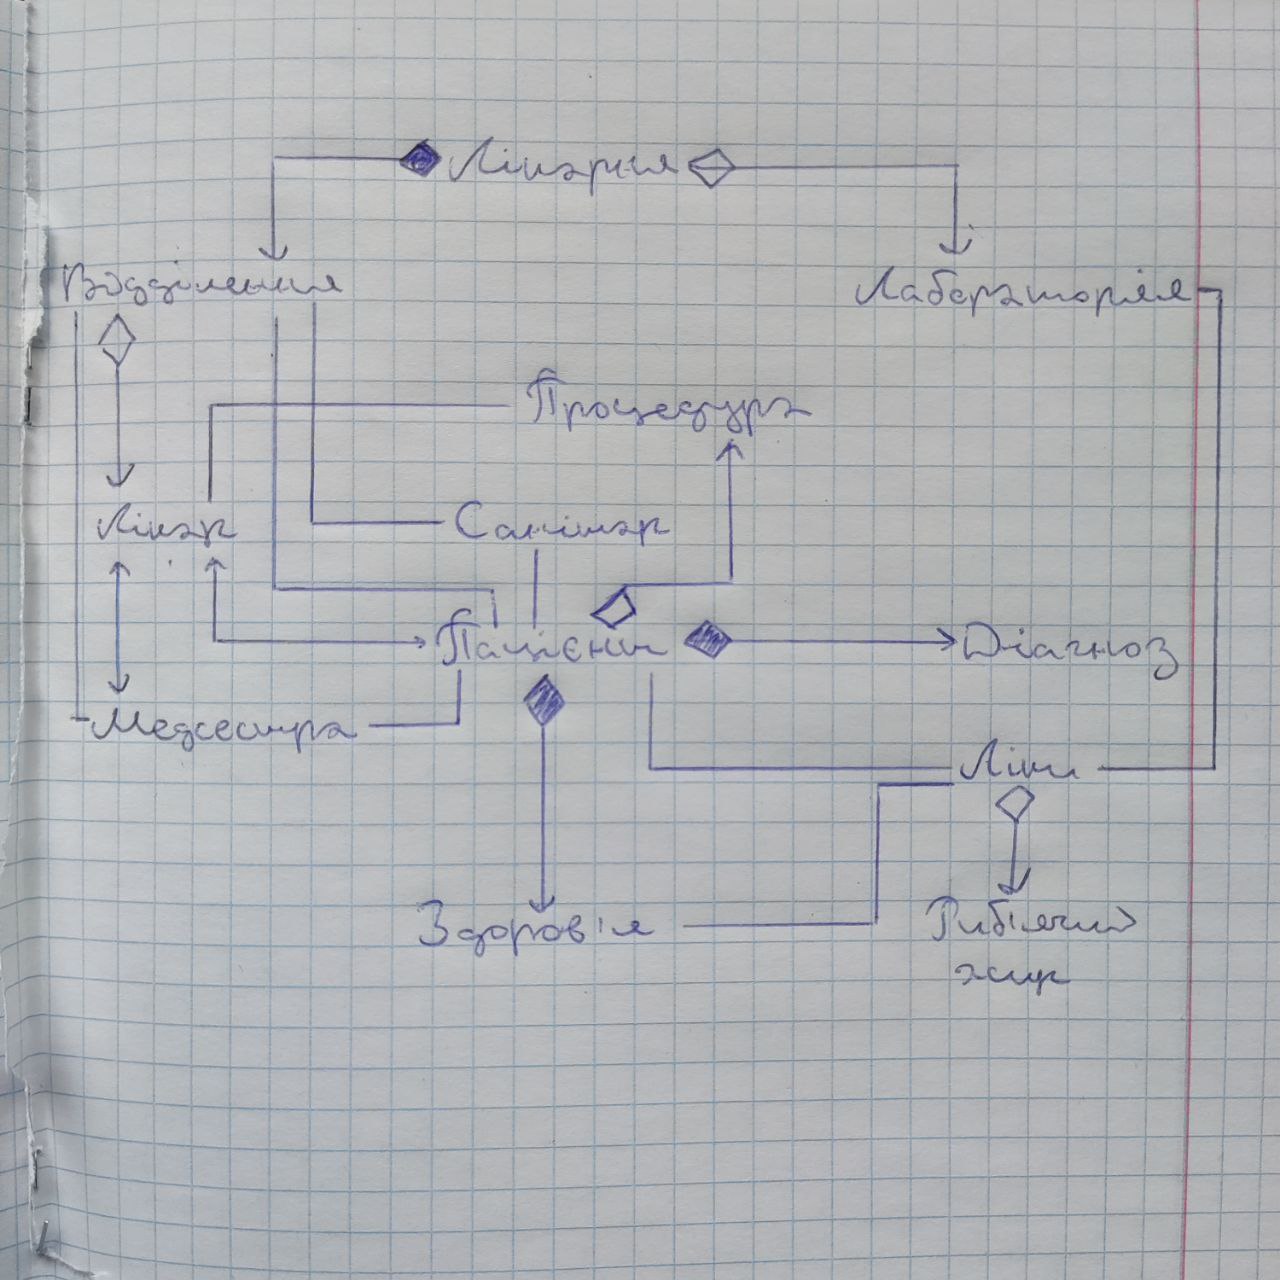 Лікарня
Відділення
Лабораторія
Процедура
Лікар
Санітар
Пацієнт
Діагноз
Медсестра
Ліки
Здоров'я
Риб'ячий
жир